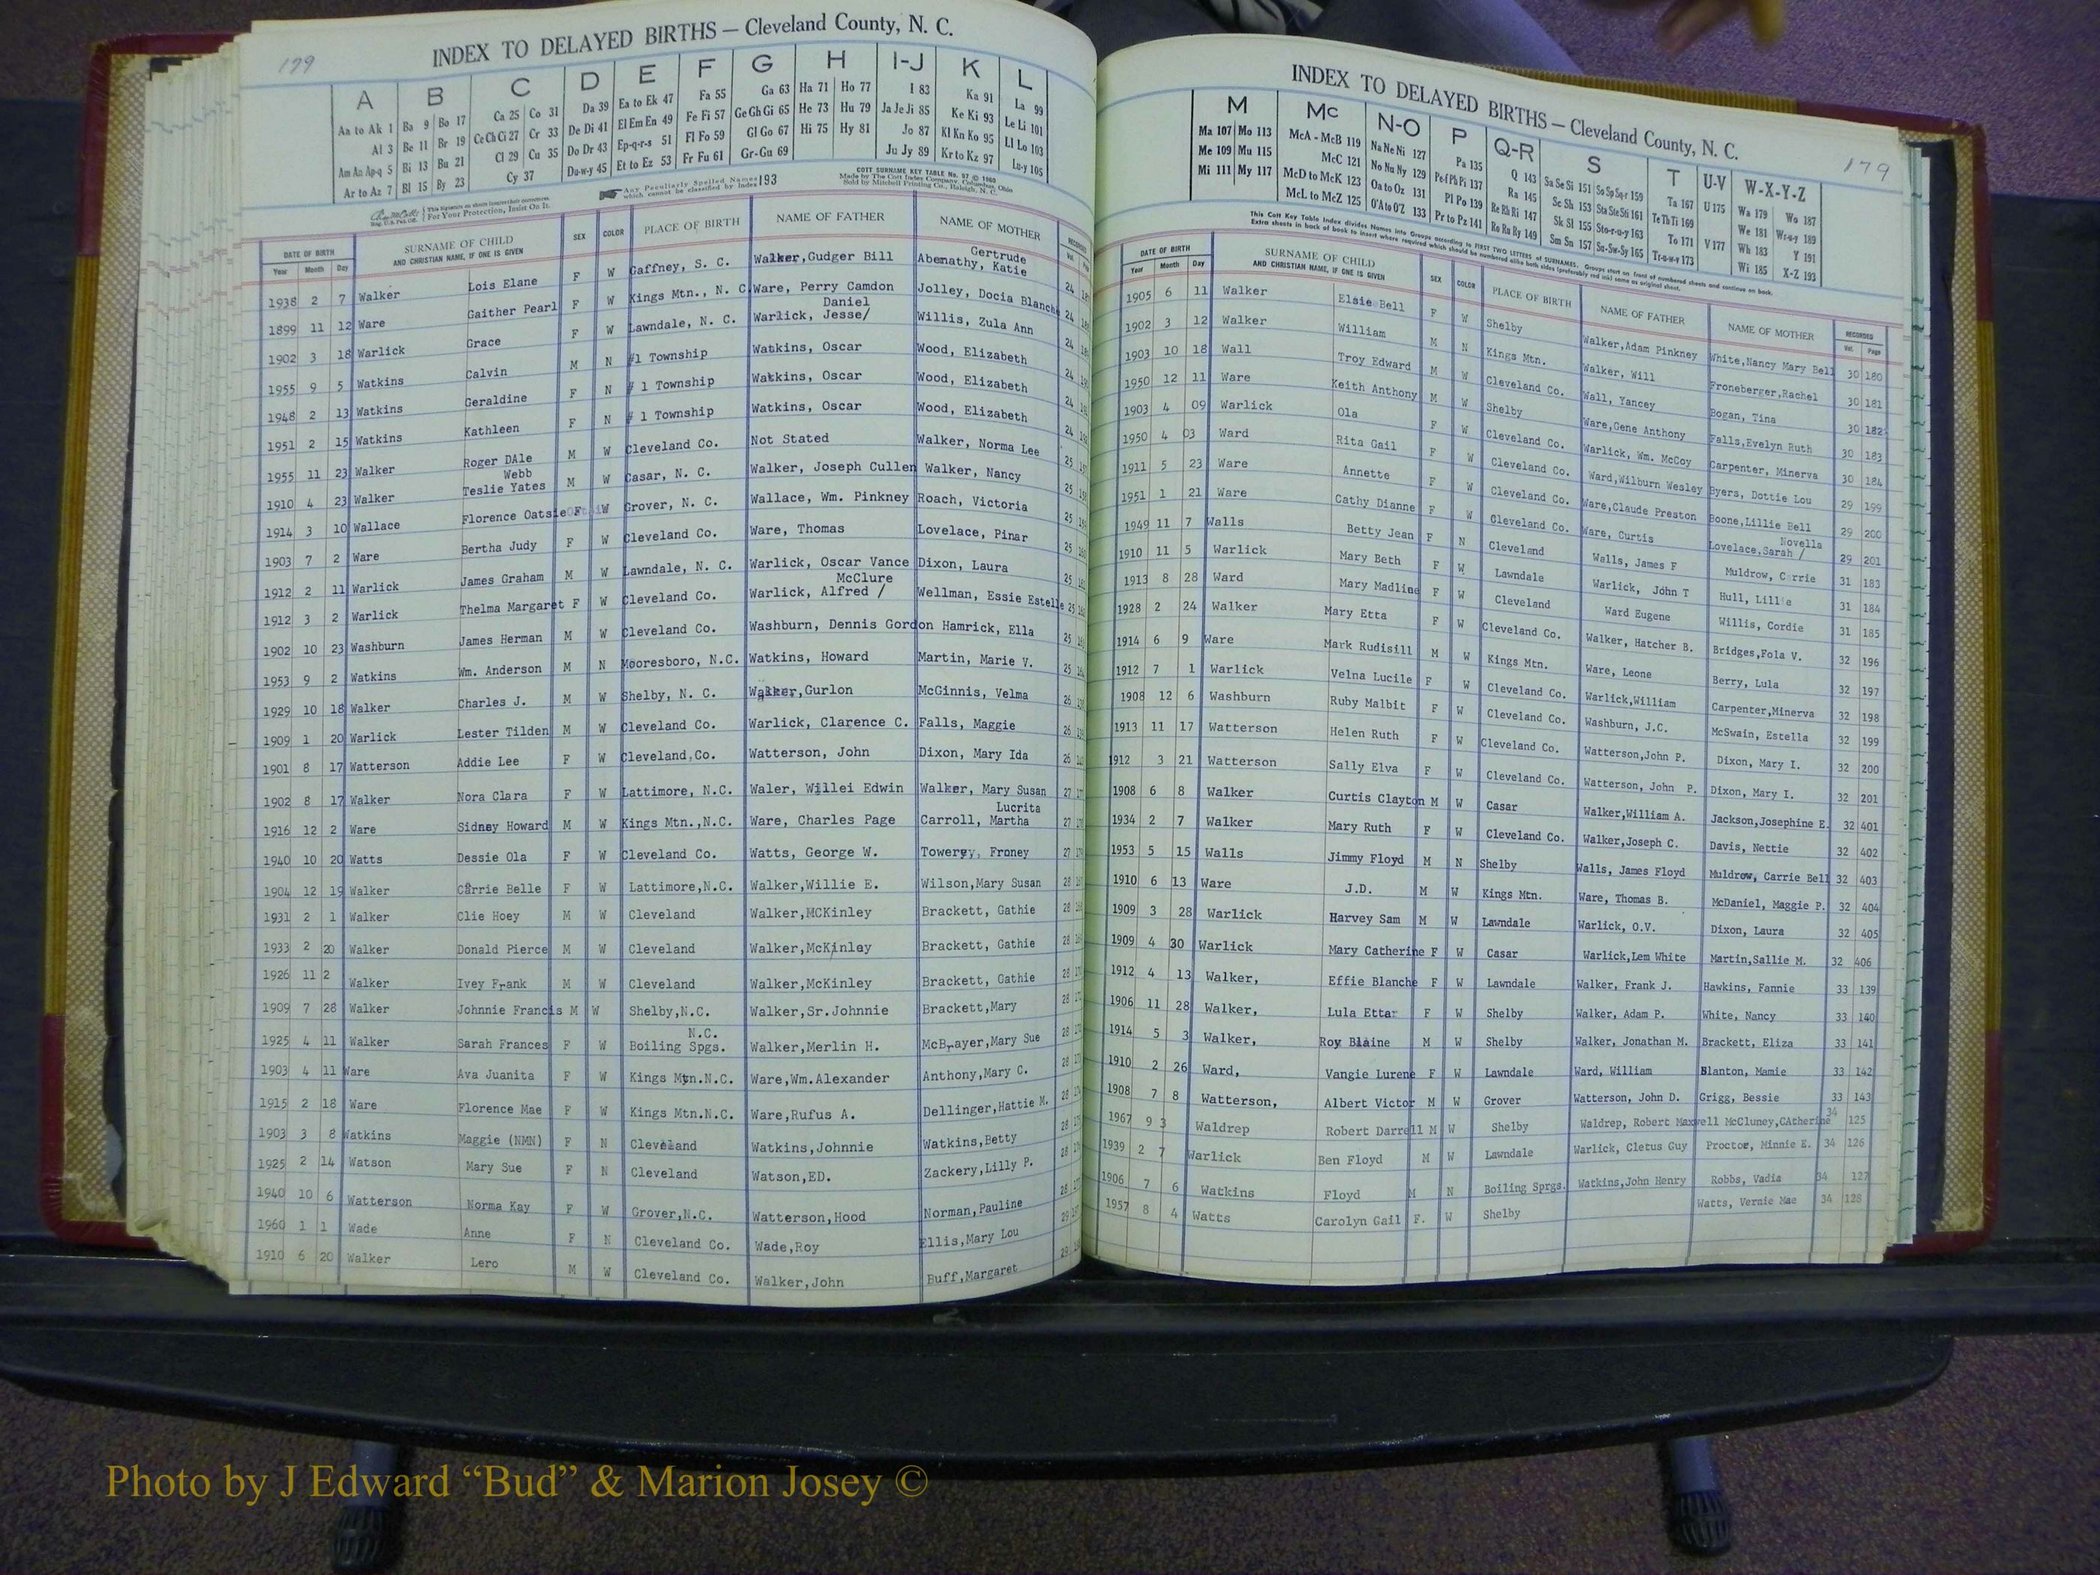 179
INDEX TO DELAYED BIRTHS — Cleveland County, N. C.
A B C D E F G H I-J K L
Aa to Ak 1 Ba 9 Bo 17 Ca 25 Co 31 Da 39 Ea to Ek 47 Fa 55 Ga 63 Ha 71 Ho 77 I 83 Ka 91 La 99
Al 3 Be 11 Br 19 Ce Ch Ci 27 Cr 33 De Di 41 El Em En 49 Fe Fi 57 Ge Gh Gi 65 He 73 Hu 79 Ja Je Ji 85 Ke Ki 93 Le Li 101
Am An Ap-q 5 Bi 13 Bu 21 Cl 29 Cu 35 Do Dr 43 Ep-q-r-s 51 Fl Fo 59 Gl Go 67 Hi 75 Hy 81 Jo 87 Kl Kn Ko 95 Ll Lo 103
Ar to Az 7 Bl 15 By 23 Cy 37 Du-w-y 45 Et to Ez 53 Fr Fu 61 Gr-Gu 69 Ju Jy 89 Kr to Kz 97 Lu-y 105
Any Peculiarly Spelled Names which cannot be classified by Index 193
COTT SURNAME KEY TABLE No. 97 © 1960
Made by The Cott Index Company, Columbus, Ohio
Sold by Mitchell Printing Co., Raleigh, N. C.
For Your Protection, Insist On It.
DATE OF BIRTH SURNAME OF CHILD AND CHRISTIAN NAME, IF ONE IS GIVEN SEX COLOR PLACE OF BIRTH NAME OF FATHER NAME OF MOTHER
Year Month Day Vol.
1938 2 7 Walker Lois Elane F W Gaffney, S. C. Walker, Gudger Bill Abernathy, Katie Gertrude 24
1899 11 12 Ware Gaither Pearl F W Kings Mtn., N. C. Ware, Perry Camdon Jolley, Docia Blanche 24
1902 3 18 Warlick Grace F W Lawndale, N. C. Warlick, Jesse/ Daniel Willis, Zula Ann 24
1955 9 5 Watkins Calvin M N #1 Township Watkins, Oscar Wood, Elizabeth 24
1948 2 13 Watkins Geraldine F N # 1 Township Watkins, Oscar Wood, Elizabeth 24
1951 2 15 Watkins Kathleen F N # 1 Township Watkins, Oscar Wood, Elizabeth 24
1955 11 23 Walker Roger DAle M W Cleveland Co. Not Stated Walker, Norma Lee 25
1910 4 23 Walker Teslie Yates Webb M W Casar, N. C. Walker, Joseph Cullen Walker, Nancy 25
1914 3 10 Wallace Florence Oatsie F W Grover, N. C. Wallace, Wm. Pinkney Roach, Victoria 25
1903 7 2 Ware Bertha Judy F W Cleveland Co. Ware, Thomas Lovelace, Pinar 25
1912 2 11 Warlick James Graham M W Lawndale, N. C. Warlick, Oscar Vance Dixon, Laura 25
1912 3 2 Warlick Thelma Margaret F W Cleveland Co. Warlick, Alfred / McClure Wellman, Essie Estelle 25
1902 10 23 Washburn James Herman M W Cleveland Co. Washburn, Dennis Gordon Hamrick, Ella 25
1953 9 2 Watkins Wm. Anderson M N Mooresboro, N.C. Watkins, Howard Martin, Marie V. 25
1929 10 18 Walker Charles J. M W Shelby, N. C. Walker,Gurlon McGinnis, Velma 26
1909 1 20 Warlick Lester Tilden M W Cleveland Co. Warlick, Clarence C. Falls, Maggie 26
1901 8 17 Watterson Addie Lee F W Cleveland,Co. Watterson, John Dixon, Mary Ida 26
1902 8 17 Walker Nora Clara F W Lattimore, N.C. Waler, Willei Edwin Walker, Mary Susan 27
1916 12 2 Ware Sidney Howard M W Kings Mtn.,N.C. Ware, Charles Page Carroll, Martha Lucrita 27
1940 10 20 Watts Dessie Ola F W Cleveland Co. Watts, George W. Towery, Froney 27
1904 12 19 Walker Carrie Belle F W Lattimore,N.C. Walker,Willie E. Wilson,Mary Susan 28
1931 2 1 Walker Clie Hoey M W Cleveland Walker,MCKinley Brackett, Gathie 28
1933 2 20 Walker Donald Pierce M W Cleveland Walker,McKinley Brackett, Gathie 28
1926 11 2 Walker Ivey Frank M W Cleveland Walker,McKinley Brackett, Gathie 28
1909 7 28 Walker Johnnie Francis M W Shelby,N.C. Walker,Sr.Johnnie Brackett,Mary 28
1925 4 11 Walker Sarah Frances F W Boiling Spgs. N.C. Walker,Merlin H. McBrayer,Mary Sue 28
1903 4 11 Ware Ava Juanita F W Kings Mtn.N.C. Ware,Wm.Alexander Anthony,Mary C. 28
1915 2 18 Ware Florence Mae F W Kings Mtn.N.C. Ware,Rufus A. Dellinger,Hattie M. 28
1903 3 8 Watkins Maggie (NMN) F N Cleveland Watkins,Johnnie Watkins,Betty 28
1925 2 14 Watson Mary Sue F N Cleveland Watson,ED. Zackery,Lilly P. 28
1940 10 6 Watterson Norma Kay F W Grover,N.C. Watterson,Hood Norman,Pauline 28
1960 1 1 Wade Anne F N Cleveland Co. Wade,Roy Ellis,Mary Lou 29
1910 6 20 Walker Lero M W Cleveland Co. Walker,John Buff,Margaret 29
INDEX TO DELAYED BIRTHS — Cleveland County, N. C.
179
M Mc N-O P Q-R S T U-V W-X-Y-Z
Ma 107 Mo 113 McA - McB 119 Na Ne Ni 127 Pa 135 Q 143 Sa Se Si 151 So Sp Sq-r 159 Ta 167 U 175 Wa 179 Wo 187
Me 109 Mu 115 McC 121 No Nu Ny 129 Pe-f Ph Pi 137 Ra 145 Sc Sh 153 Sta Ste Sti 161 Te Th Ti 169 We 181 Wr-u-y 189
Mi 111 My 117 McD to McK 123 Oa to Oz 131 Pl Po 139 Re Rh Ri 147 Sk Sl 155 Sto-r-u-y 163 To 171 V 177 Wh 183 Y 191
McL to McZ 125 O'A to O'Z 133 Pr to Pz 141 Ro Ru Ry 149 Sm Sn 157 Su-Sw-Sy 165 Tr-u-w-y 173 Wi 185 X-Z 193
This Cott Key Table Index divides Names into Groups according to FIRST TWO LETTERS of SURNAMES. Groups start on front of numbered sheets and continue on back.
Extra sheets in back of book to insert where required which should be numbered alike both sides (preferably red ink) same as original sheet.
DATE OF BIRTH SURNAME OF CHILD AND CHRISTIAN NAME, IF ONE IS GIVEN SEX COLOR PLACE OF BIRTH NAME OF FATHER NAME OF MOTHER RECORDED
Year Month Day Vol. Page
1905 6 11 Walker Elsie Bell F W Shelby Walker,Adam Pinkney White,Nancy Mary Bell 30 180
1902 3 12 Walker William M N Kings Mtn. Walker, Will Froneberger,Rachel 30 181
1903 10 18 Wall Troy Edward M W Cleveland Co. Wall, Yancey Bogan, Tina 30 182
1950 12 11 Ware Keith Anthony M W Shelby Ware,Gene Anthony Falls,Evelyn Ruth 30 183
1903 4 09 Warlick Ola F W Cleveland Co. Warlick, Wm. McCoy Carpenter, Minerva 30 184
1950 4 03 Ward Rita Gail F W Cleveland Co. Ward,Wilburn Wesley Byers, Dottie Lou 29 199
1911 5 23 Ware Annette F W Cleveland Co. Ware,Claude Preston Boone,Lillie Bell 29 200
1951 1 21 Ware Cathy Dianne F W Cleveland Co. Ware, Curtis Lovelace,Sarah / Novella 29 201
1949 11 7 Walls Betty Jean F N Cleveland Walls, James F Muldrow, Carrie 31 183
1910 11 5 Warlick Mary Beth F W Lawndale Warlick, John T Hull, Lillie 31 184
1913 8 28 Ward Mary Madline F W Cleveland Ward Eugene Willis, Cordie 31 185
1928 2 24 Walker Mary Etta F W Cleveland Co. Walker, Hatcher B. Bridges,Fola V. 32 196
1914 6 9 Ware Mark Rudisill M W Kings Mtn. Ware, Leone Berry, Lula 32 197
1912 7 1 Warlick Velna Lucile F W Cleveland Co. Warlick,William Carpenter,Minerva 32 198
1908 12 6 Washburn Ruby Malbit F W Cleveland Co. Washburn, J.C. McSwain, Estella 32 199
1913 11 17 Watterson Helen Ruth F W Cleveland Co. Watterson,John P. Dixon, Mary I. 32 200
1912 3 21 Watterson Sally Elva F W Cleveland Co. Watterson, John P. Dixon, Mary I. 32 201
1908 6 8 Walker Curtis Clayton M W Casar Walker,William A. Jackson,Josephine E. 32 401
1934 2 7 Walker Mary Ruth F W Cleveland Co. Walker,Joseph C. Davis, Nettie 32 402
1953 5 15 Walls Jimmy Floyd M N Shelby Walls, James Floyd Muldrow, Carrie Bell 32 403
1910 6 13 Ware J.D. M W Kings Mtn. Ware, Thomas B. McDaniel, Maggie P. 32 404
1909 3 28 Warlick Harvey Sam M W Lawndale Warlick, O.V. Dixon, Laura 32 405
1909 4 30 Warlick Mary Catherine F W Casar Warlick,Lem White Martin,Sallie M. 32 406
1912 4 13 Walker, Effie Blanche F W Lawndale Walker, Frank J. Hawkins, Fannie 33 139
1906 11 28 Walker, Lula Etta F W Shelby Walker, Adam P. White, Nancy 33 140
1914 5 3 Walker, Roy Blaine M W Shelby Walker, Jonathan M. Brackett, Eliza 33 141
1910 2 26 Ward, Vangie Lurene F W Lawndale Ward, William Blanton, Mamie 33 142
1908 7 8 Watterson, Albert Victor M W Grover Watterson, John D. Grigg, Bessie 33 143
1967 9 3 Waldrep Robert Darrell M W Shelby Waldrep, Robert Maxwell McCluney,CAtherine 34 125
1939 2 7 Warlick Ben Floyd M W Lawndale Warlick, Cletus Guy Proctor, Minnie E. 34 126
1906 7 6 Watkins Floyd M N Boiling Sprgs. Watkins,John Henry Robbs, Vadia 34 127
1957 8 4 Watts Carolyn Gail F. W Shelby Watts, Vernie Mae 34 128
Photo by J Edward “Bud” & Marion Josey ©